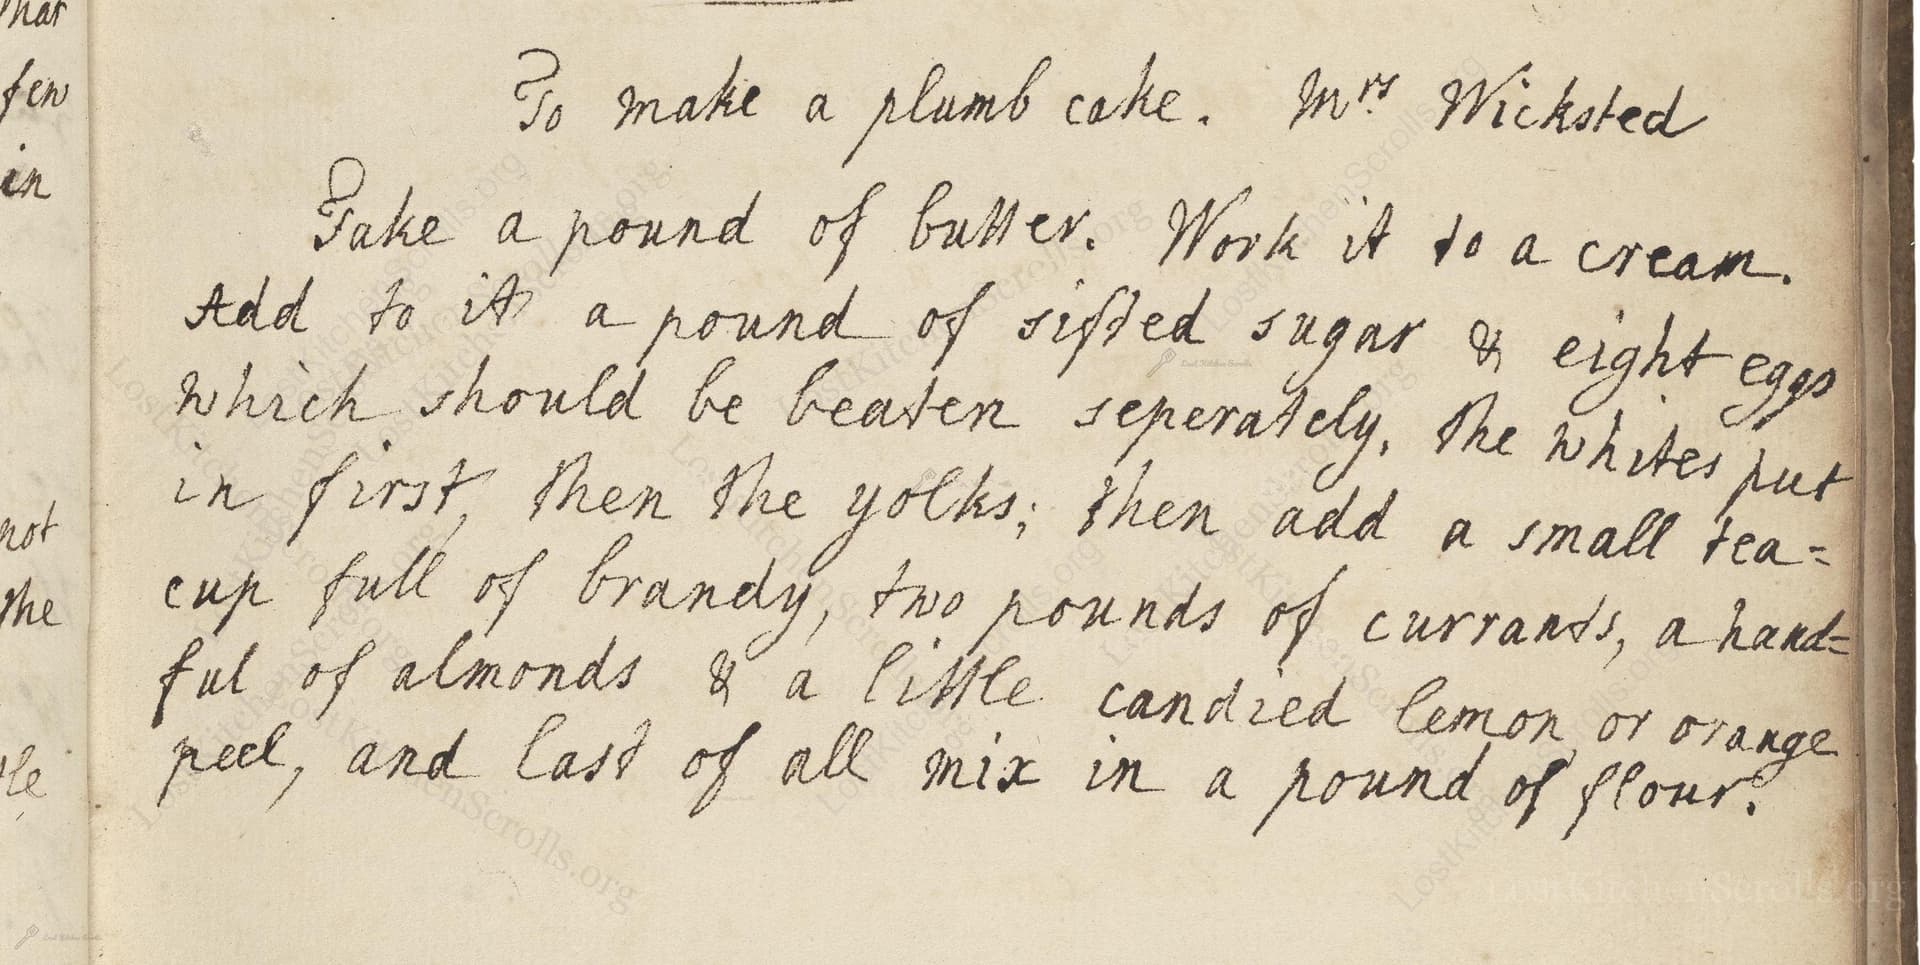 To make a plumb cake. Mrs Wicksted
Take a pound of butter. Work it to a cream.
Add to it a pound of sifted sugar & eight eggs
which should be beaten seperately, the whites put
in first, then the yolks; then add a small tea=
cup full of brandy, two pounds of currants, a hand=
ful of almonds & a little candied lemon or orange
peel, and last of all mix in a pound of flour.
few
in
not
the
LostKitchenScrolls.org